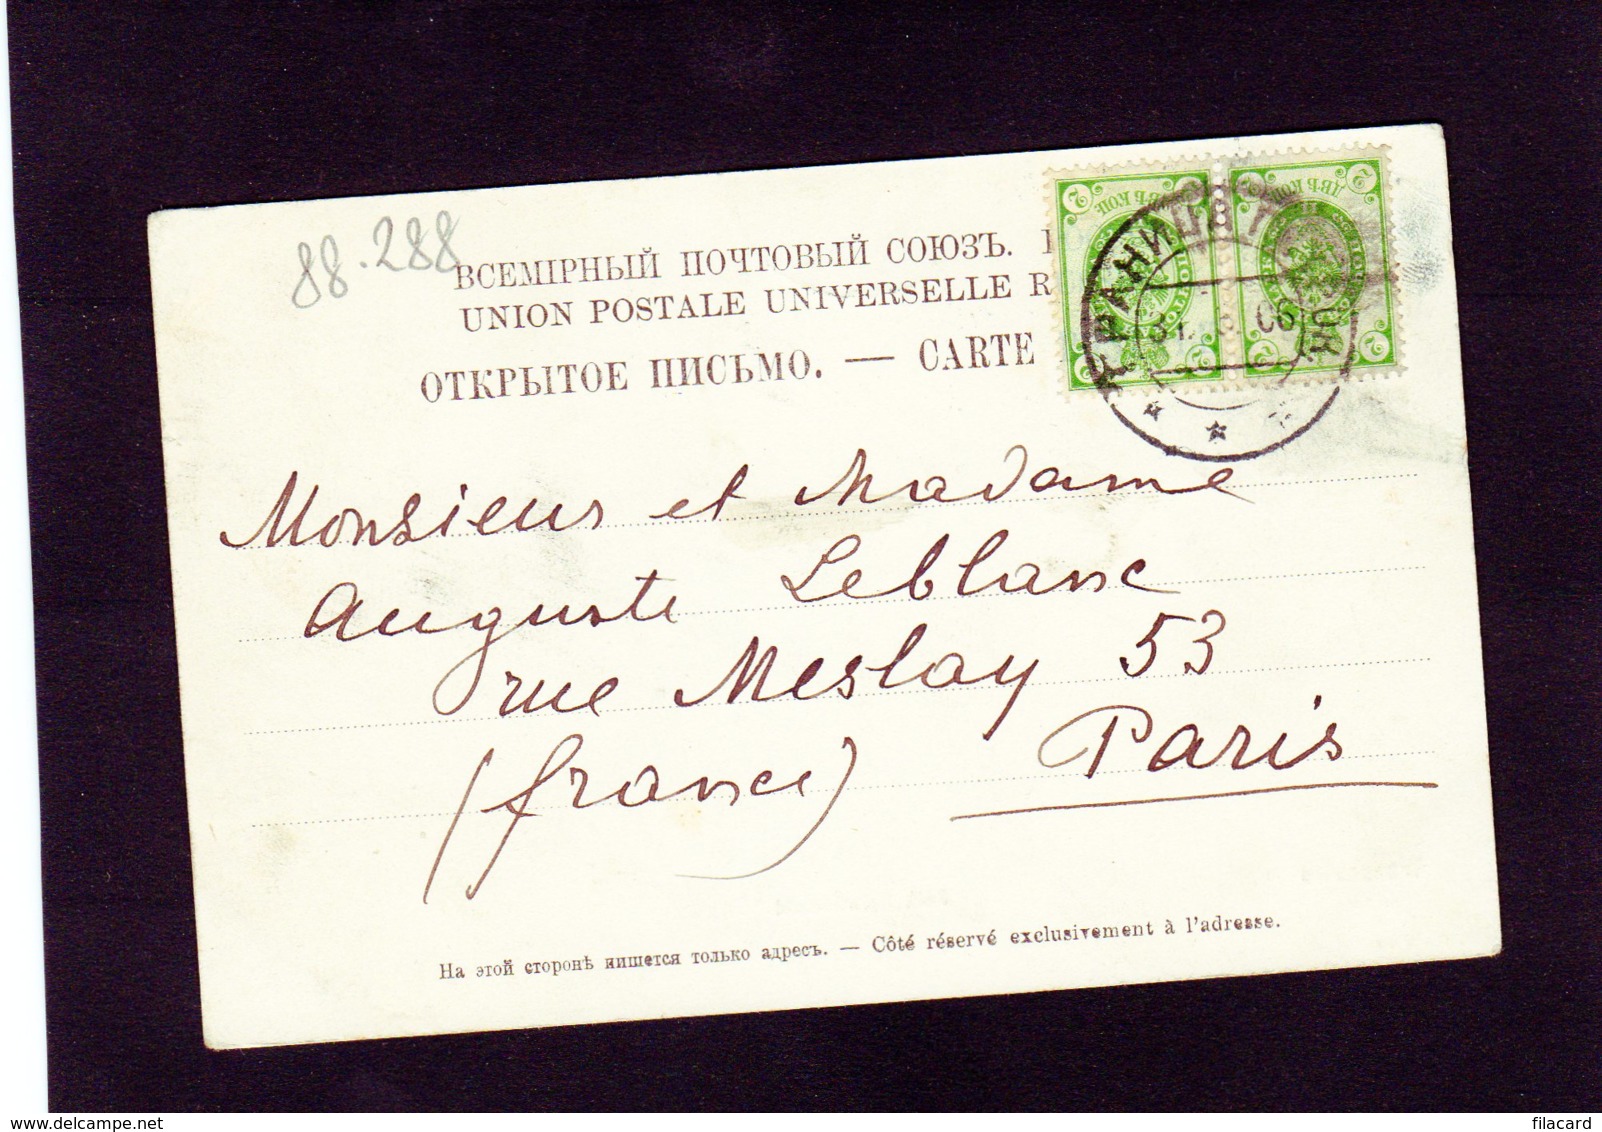 88.288
ВСЕМІРНЫЙ ПОЧТОВЫЙ СОЮЗЪ.
UNION POSTALE UNIVERSELLE R
ОТКРЫТОЕ ПИСЬМО. — CARTE
ДВѢ КОП. ДВѢ КОП.
2 2 2 2
ГРАНИЦА
31. 8. 06
Monsieur et Madame
Auguste Leblanc
rue Meslay 53
(france) Paris
На этой сторонѣ пишется только адресъ. — Côté réservé exclusivement à l'adresse.
delcampe.net
filacard